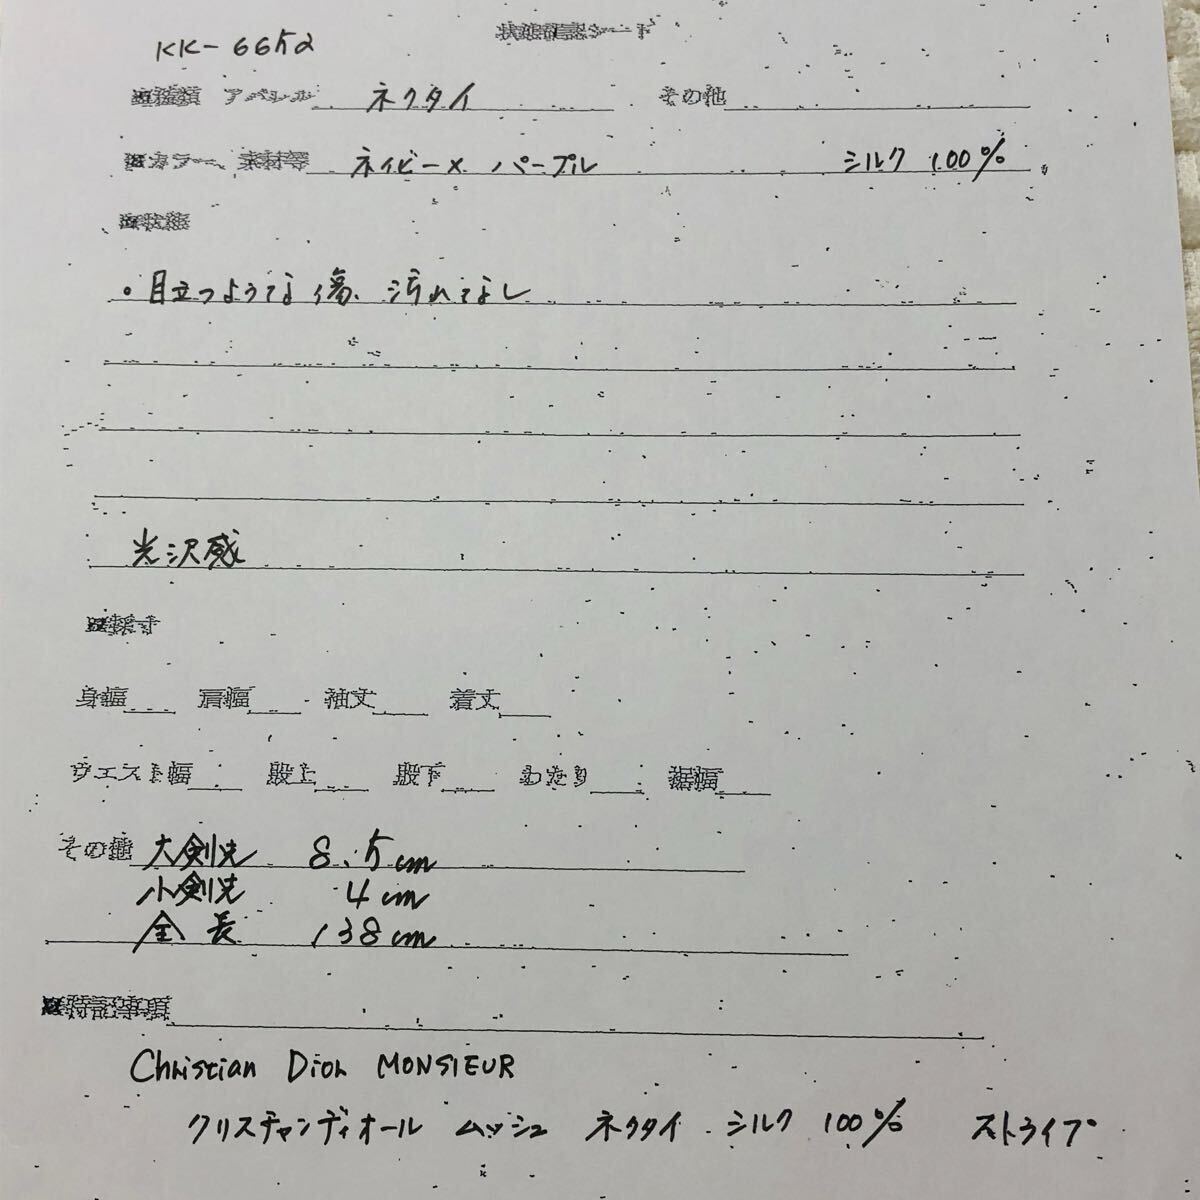 状態確認シート
KK-6652
※種類 アパレル ネクタイ その他
※カラー、素材等 ネイビー× パープル シルク 100%
※状態
・目立つような傷、汚れなし
光沢感
※採寸
身幅 肩幅 袖丈 着丈
ウエスト幅 股上 股下 わたり 裾幅
その他 大剣先 8.5cm
小剣先 4cm
全長 138cm
※特記事項
Christian Dior MONSIEUR
クリスチャンディオール ムッシュ ネクタイ シルク 100% ストライプ